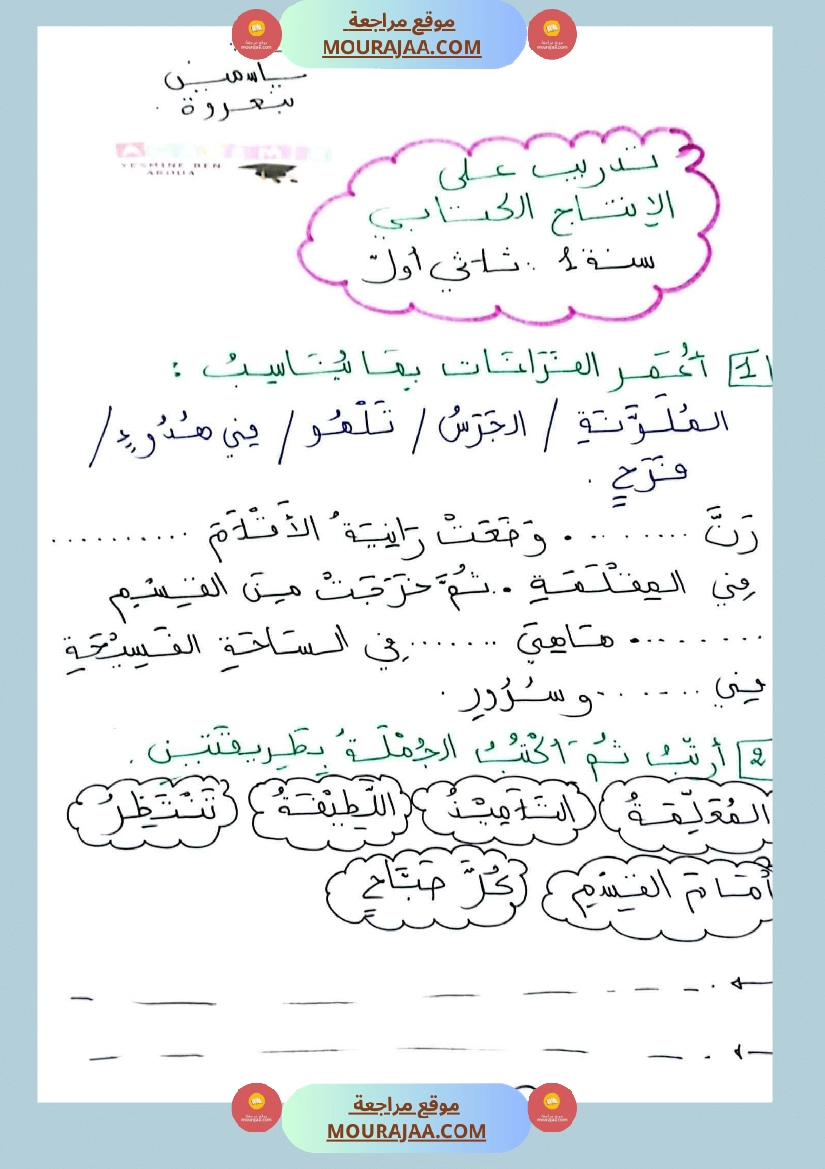 موقع مراجعة
MOURAJAA.COM
ياسمين
بنعروة
YESMINE BEN
AROUA
تدريب على
الإنتاج الكتابي
سنة 1 : ثلاثي أول
1 أُعَمِّر الفَرَاغَات بِمَا يُنَاسِبُ :
المُلَوَّنَةِ / الجَرَسُ / تَلْهُو / فِي هُدُوءٍ /
فَرَحٍ .
رَنَّ ......... . وَضَعَتْ رَانِيَةُ الأَقْلَامَ ..........
فِي المِقْلَمَةِ . ثُمَّ خَرَجَتْ مِنَ القِسْمِ
......... . هَاهِيَ ....... فِي السَاحَةِ الفَسِيْحَةِ
فِي ....... وسُرُورٍ .
2 أرتّبُ ثُمَّ أكْتُبُ الجُمْلَةَ بِطَرِيقَتَيْنِ .
المُعَلِّمَةُ التَلَامِيْذُ اللَّطِيْفَةُ تَنْتَظِرُ
أَمَامَ القِسْمِ كُلَّ صَبَاحٍ
موقع مراجعة
MOURAJAA.COM